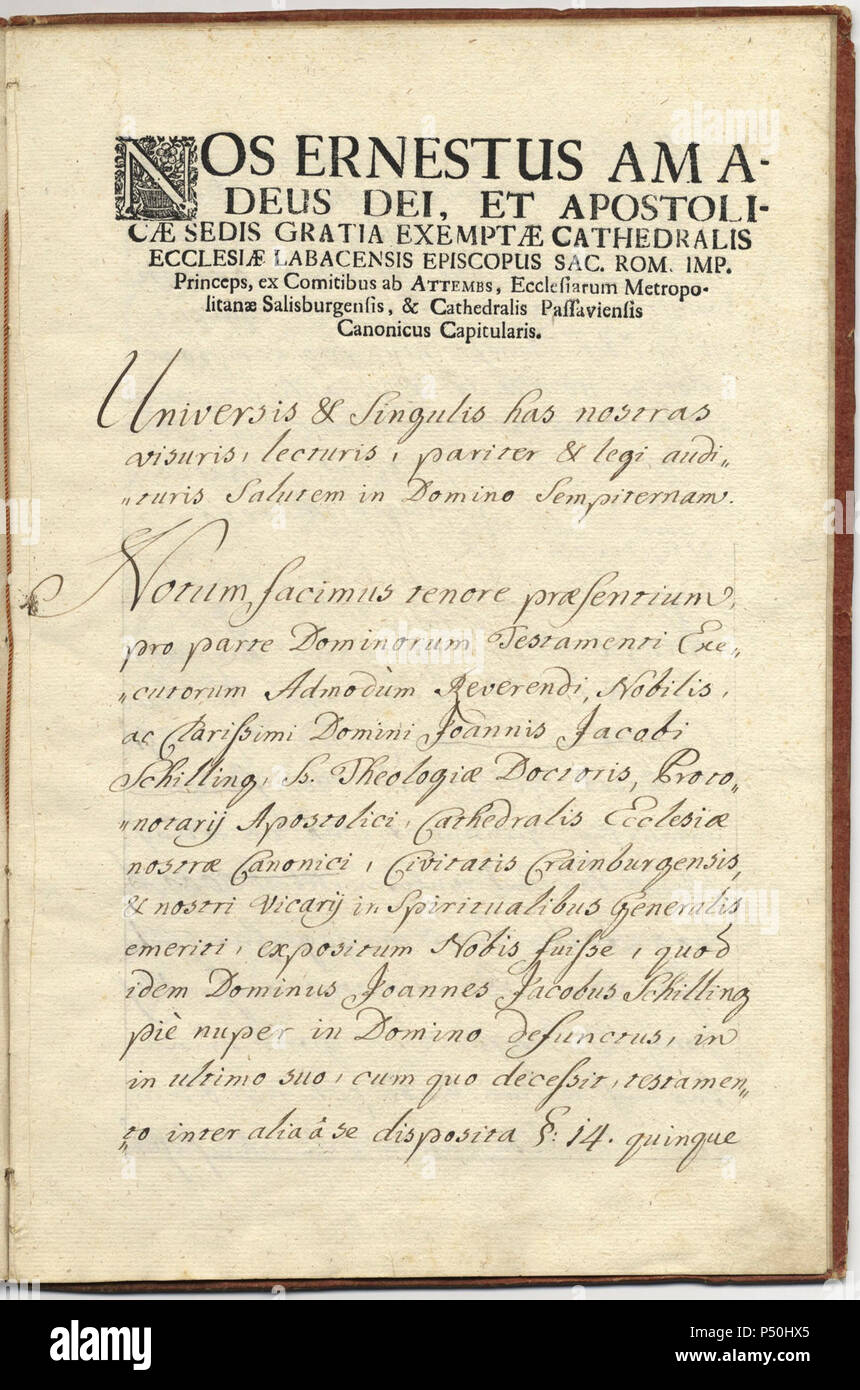 NOS ERNESTUS AMA-
DEUS DEI, ET APOSTOLI-
CÆ SEDIS GRATIA EXEMPTÆ CATHEDRALIS
ECCLESIÆ LABACENSIS EPISCOPUS SAC. ROM. IMP.
Princeps, ex Comitibus ab ATTEMBS, Eccleſiarum Metropo-
litanæ Salisburgenſis, & Cathedralis Paſſavienſis
Canonicus Capitularis.
Universis & Singulis has nostras
visuris, lecturis, pariter & legi audi„
„turis Salutem in Domino Sempiternam.
Notum facimus tenore præsentium,
pro parte Dominorum Testamenti Exe„
„cutorum Admodùm Reverendi, Nobilis,
ac Clariſsimi Domini Joannis Jacobi
Schilling, Ss. Theologiæ Doctoris, Proto„
„notarij Apostolici, Cathedralis Ecclesiæ
nostræ Canonici, Civitatis Crainburgensis,
& nostri Vicarij in Spiritualibus Generalis
emeriti, expositum Nobis fuiſse, quod
idem Dominus Joannes Jacobus Schilling
piè nuper in Domino defunctus, in
in ultimo suo, cum quo deceſsit, testamen„
„to inter alia à se disposita §: 14. quinque
alamy
Image ID: P50HX5
www.alamy.com